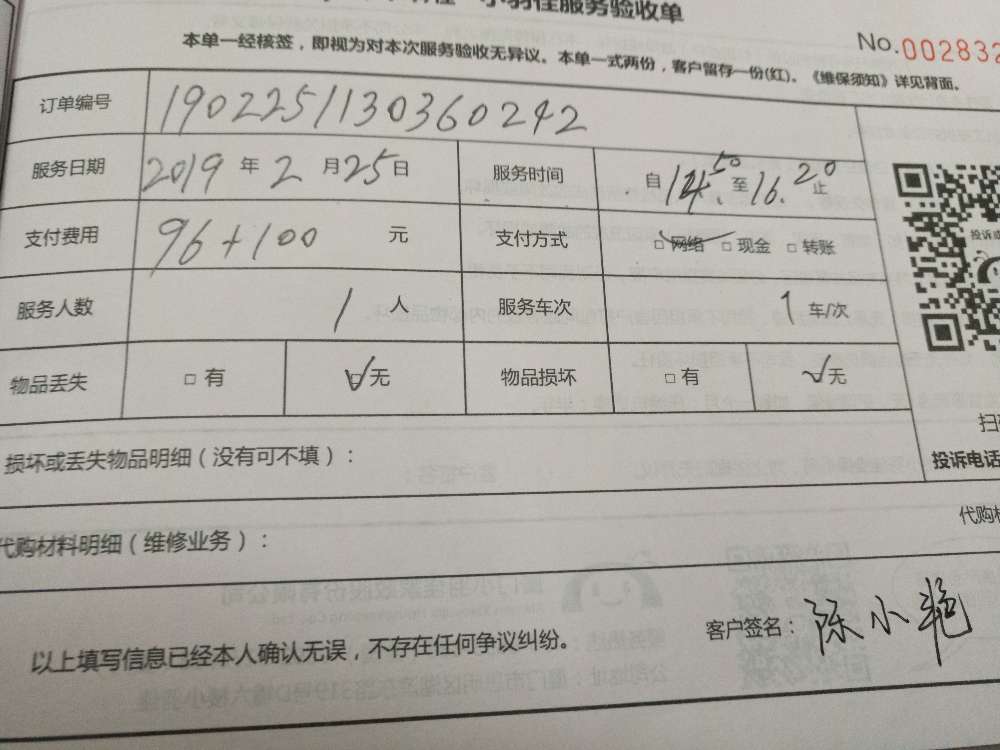 小羽佳服务验收单
本单一经核签，即视为对本次服务验收无异议。本单一式两份，客户留存一份(红)。《维保须知》详见背面。
No.002832
订单编号 1902251130360242
服务日期 2019 年 2 月 25 日 服务时间 自 14.50 至 16.20 止
支付费用 96+100 元 支付方式 □ 网络 □ 现金 □ 转账
服务人数 1 人 服务车次 1 车/次
物品丢失 □ 有 □ 无 物品损坏 □ 有 无
损坏或丢失物品明细（没有可不填）：
投诉电话
代购材料明细（维修业务）：
以上填写信息已经本人确认无误，不存在任何争议纠纷。
客户签名：陈小艳